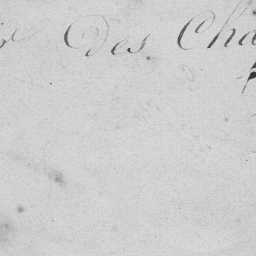 Des Cha